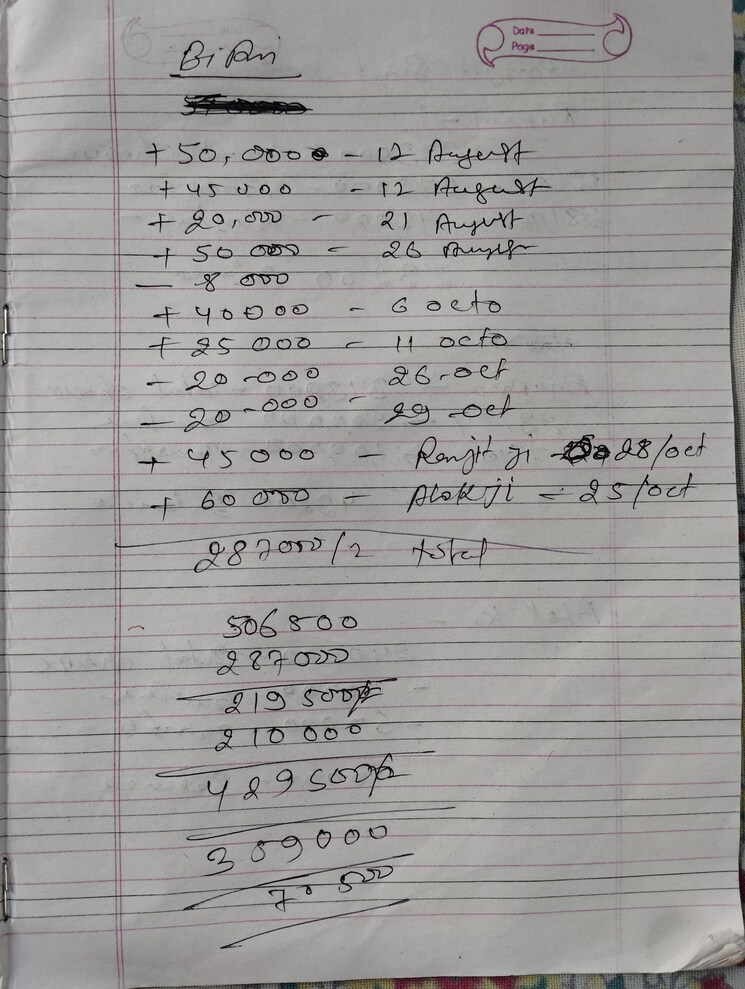 Date
Page
+ 50,000 - 12 August
+ 45000 - 12 August
+ 20,000 - 21 August
+ 50000 - 26 August
- 8000
+ 40000 - 6 octo
+ 25000 - 11 octo
- 20-000 - 26-oct
- 20-000 - 29-oct
+ 45000 - Ranjit ji - 28/oct
+ 60000 - Alok ji - 25/oct
287000/2 total
506500
287000
219500/
210000
429500/
359000
70500